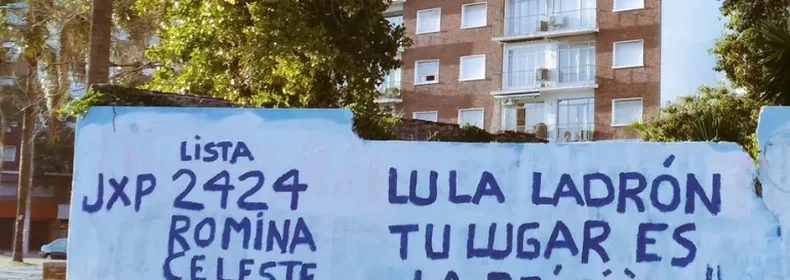 LISTA
JXP 2424
ROMINA
CELESTE
LULA LADRÓN
TU LUGAR ES
LA